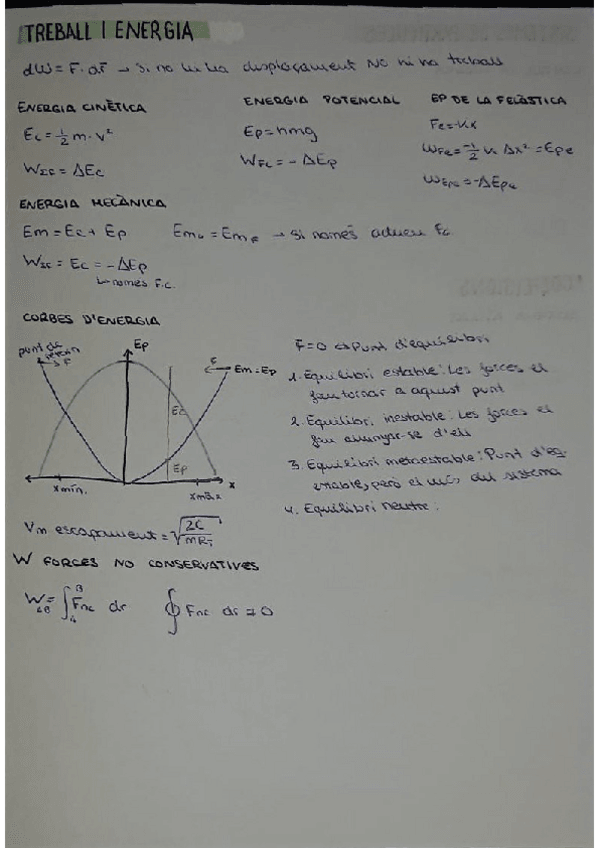 TREBALL I ENERGIA
dW = F·dr → Si no hi ha desplaçament NO hi ha treball
ENERGIA CINÈTICA
Ec = 1/2 m·v²
W = ΔEc
ENERGIA POTENCIAL
Ep = hmg
WFc = -ΔEp
EP DE LA F ELÀSTICA
Fe = -kx
WFe = -1/2 k Δx² = Epe
WEpe = -ΔEpe
ENERGIA MECÀNICA
Em = Ec + Ep
Em = Em → si només actuen Fc
W = Ec = -ΔEp
només F.c.
CORBES D'ENERGIA
punt de
F
Ep
F
Em = Ep
Ec
Ep
xmín.
xmàx
x
F=0 ⇔ Punt d'equilibri
1. Equilibri estable: Les forces el
fan tornar a aquest punt
2. Equilibri inestable: Les forces el
fan allunyar-se d'ell
3. Equilibri metaestable: Punt d'es-
table, però el més del sistema
4. Equilibri neutre:
escapament =
W FORCES NO CONSERVATIVES
W AB = ∫ A B Fnc dr
∮ Fnc dr = 0